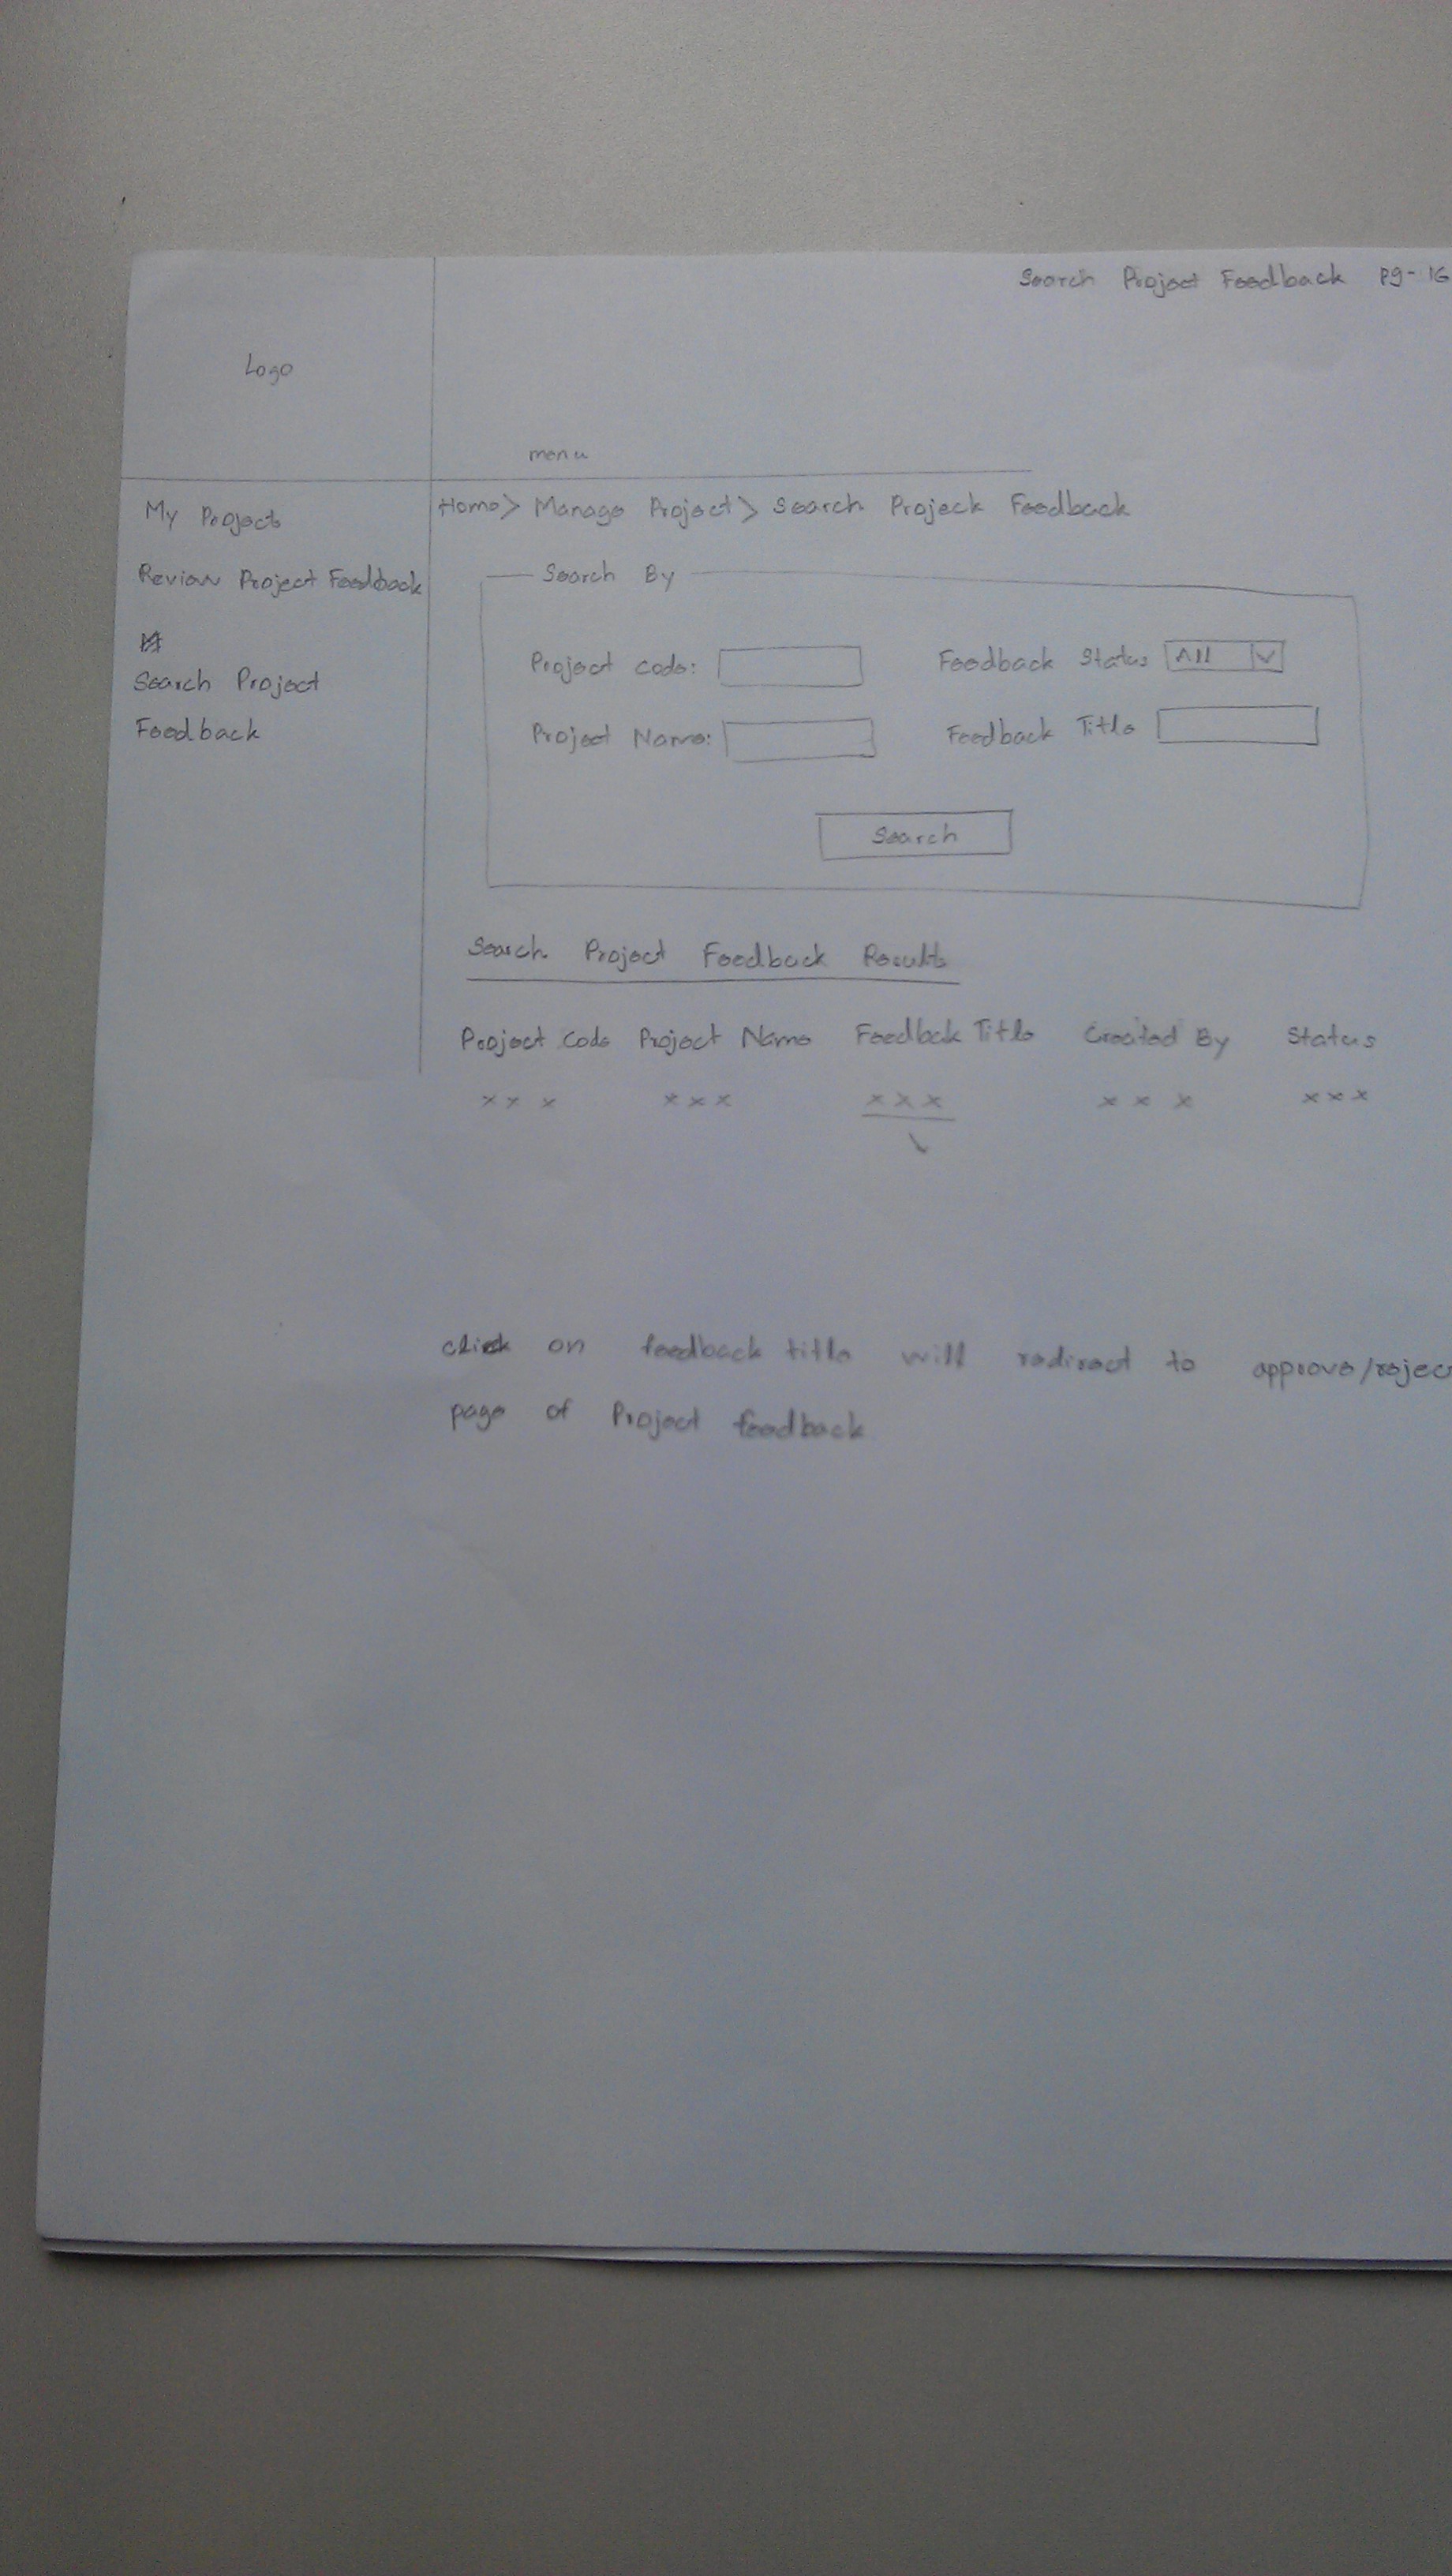 Search Project Feedback Pg-16
Logo
menu
My Project
Home> Manage Project> Search Projeck Feedback
Review Project Feedback
Search Project
Feedback
Search By
Project code: Feedback Status All
Project Name: Feedback Title
Search
Search Project Feedback Results
Project Code Project Name Feedbak Title Created By Status
x x x x x x x x x x x x x x x
click on feedback title will redirect to approve/rejec
page of Project feedback